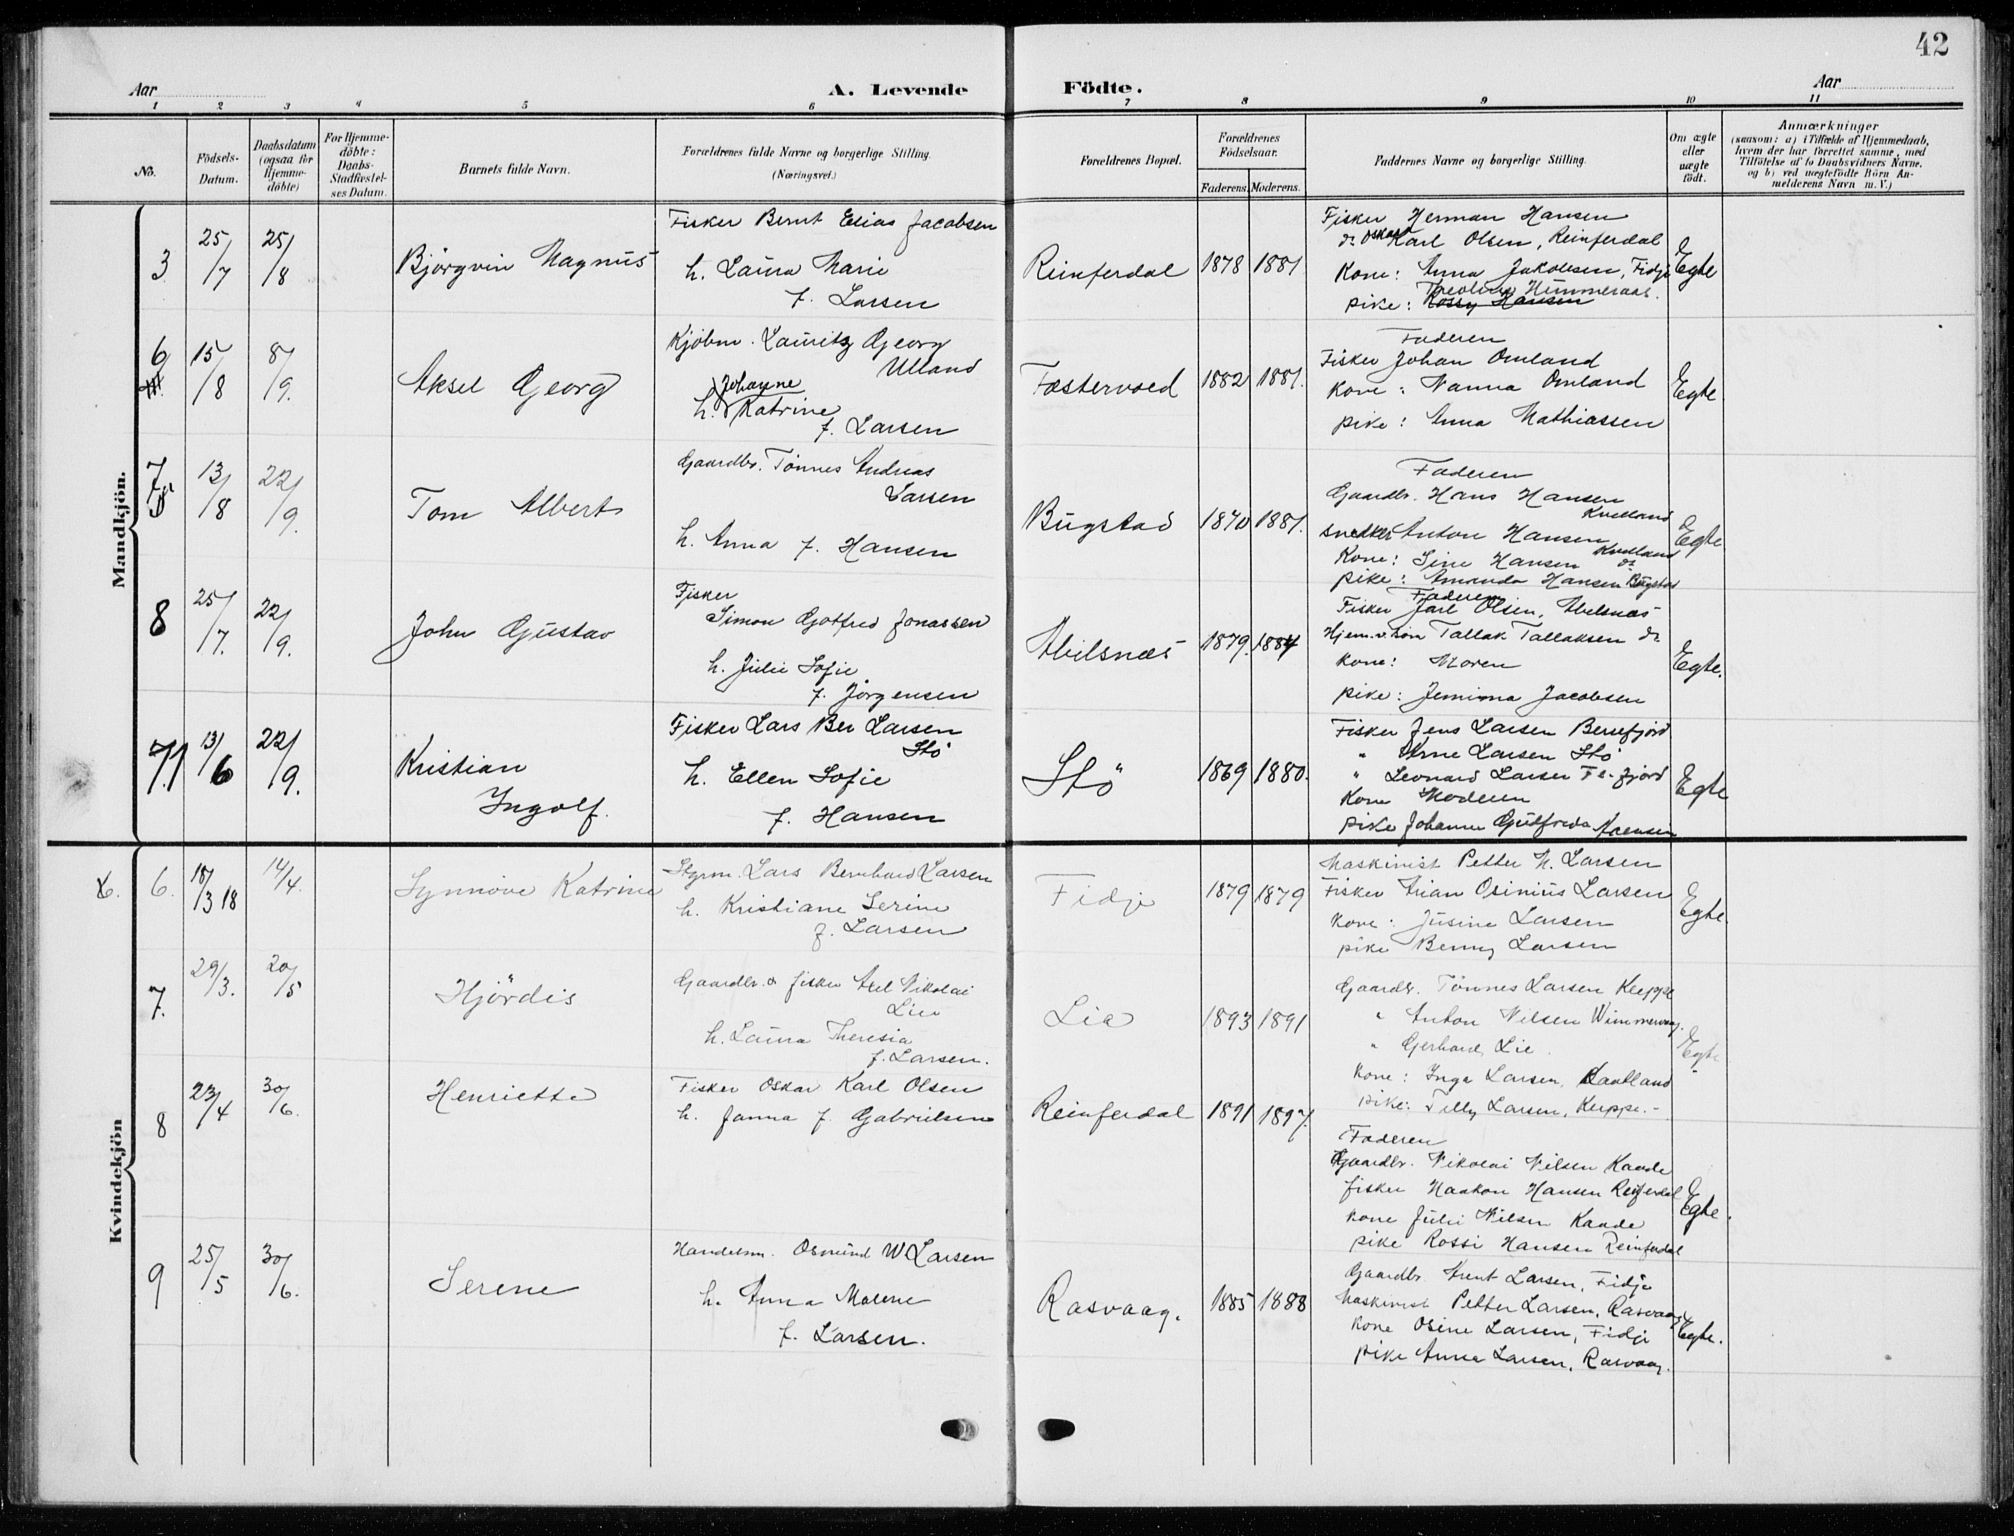 42
Aar
A. Levende
Födte.
Aar
1 2 3 4 5 6 7 8 9 10 11
No.
Födsels-
Datum.
Daabsdatum
(ogsaa for
Hjemme-
döbte)
For Hjemme-
döbte:
Daabs-
Stadfæstel-
ses Datum.
Barnets fulde Navn.
Forældrenes fulde Navne og borgerlige Stilling.
(Næringsvei.)
Forældrenes Bopæl.
Forældrenes
Födselsaar.
Faderens. Moderens.
Faddernes Navne og borgerlige Stilling.
Om ægte
eller
uægte
födt.
Anmærkninger
(saasom: a) i Tilfælde af Hjemmedaab,
hvem der har forrettet samme, med
Tilföielse af to Daabsvidners Navne.
og b) ved uægtefödte Börn An-
melderens Navn m. V.)
Mandkjön.
3
25/7
25/8
Björgvin Magnus
Fisker Bernt Elias Jacobsen
h. Laura Marie
f. Larsen
Reinferdal
1878
1881
Fisker Herman Hansen
do Oskar Karl Olsen, Reinferdal
Kone: Anna Jakobsen, Fidje
Theoline Hummeraas.
pike: Rossy Hansen
Egte
6
15/8
8/9.
Aksel Georg
Kjöbm. Lauritz Georg
Ulland
Johanne
h. Katrine
f. Larsen
Fæstervoed
1882
1881.
Faderen
Fisker Johan Omland
Kone: Nanna Omland
pike: Anna Mathiassen
Egte
7
13/8
22/9.
Tom Albert
Gaardbr. Tönnes Andreas
Larsen
h. Anna f. Hansen
Bugstad
1870
1881.
Faderen
Gaardbr. Hans Hansen
Kvelland
snedker Anton Hansen
Kvelland
Kone: Sine Hansen do
pike: Amanda Hansen Bugstad
Egte
8
25/7.
22/9.
John Gustav
Fisker
Simon Gotfred Jonassen
h. Julie Sofie
f. Jörgensen
Abelsnæs
1879.
1884
Faderen
Fisker Jarl Olsen, Abelsnæs
Hjem.v. sön Tallak Tallaksen do
Kone: Moren
pike: Jemima Jacobsen
Egte.
71
13/6
22/9.
Kristian
Ingolf.
Fisker Lars Ber Larsen
Stö
h. Ellen Sofie
f. Hansen
Stö
1869
1880.
Fisker Jens Larsen Berrefjord
" Arne Larsen Stö
" Leonard Larsen Fl. fjord
Kone Moderen
pike Johanne Gudfreda Arensen
Egte
Kvindekjön
6.
6.
18/3 18
14/4.
Synnöve Katrine
Styrm. Lars Bernhard Larsen
h. Kristiane Serine
f. Larsen
Fidje
1879
1879
Maskinist Petter W. Larsen
Fisker Arian Osinius Larsen
Kone: Jusine Larsen
pike Benny Larsen
Egte.
7.
29/3.
20/5
Hjördis
Gaardbr. & fisker Axel Nikolai
Lie
h. Laura Theresia
f. Larsen.
Lie
1893
1891
Gaardbr. Tönnes Larsen Keppe
" Anton Nilsen Wimmervaag.
" Gerhard Lie.
Kone: Inga Larsen, Kaatland
pike: Tilly Larsen, Keppe.
Egte
8
23/4
30/6.
Henriette
Fisker Oskar Karl Olsen
h. Janna f. Gabrielsen
Reinferdal
1891
1897.
Faderen
Gaardbr. Nikolai Nilsen Kaade
fisker Haakon Hansen Reinferdal
Kone Julie Nilsen Kaade
pike Rossi Hansen Reinferdal
Egte.
9
25/5
30/6.
Serene
Handelsm. Osmund W Larsen
h. Anna Malene
f. Larsen.
Rasvaag.
1885
1888
Gaardbr. Arent Larsen, Fidje
Maskinist Petter Larsen, Rasvaag
Kone Osine Larsen, Fidje
pike Anna Larsen, Rasvaag.
Egte.